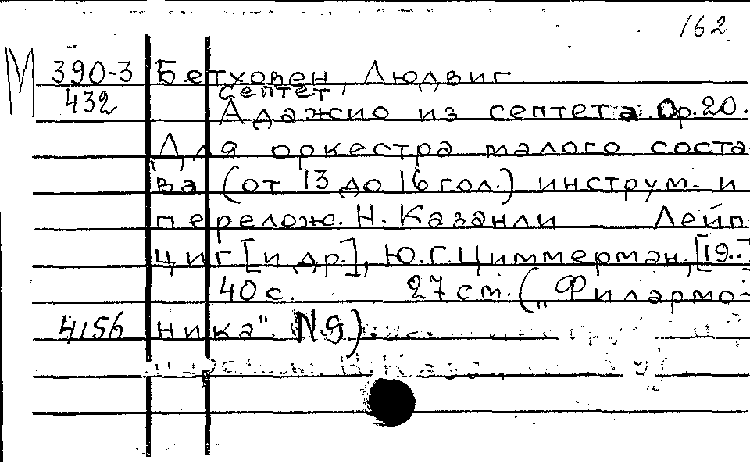 162
М 390-3 Бетховен, Людвиг
септет
432 Адажио из септета. Op.20.
Для оркестра малого соста-
ва (от 13 до 16 гол.) инструм. и
перелож. Н. Казанли Лейп-
циг [и др.], Ю.Г. Циммерман, [19..]
40 с. 27 см. („Филармо-
4156 ника" N 9).